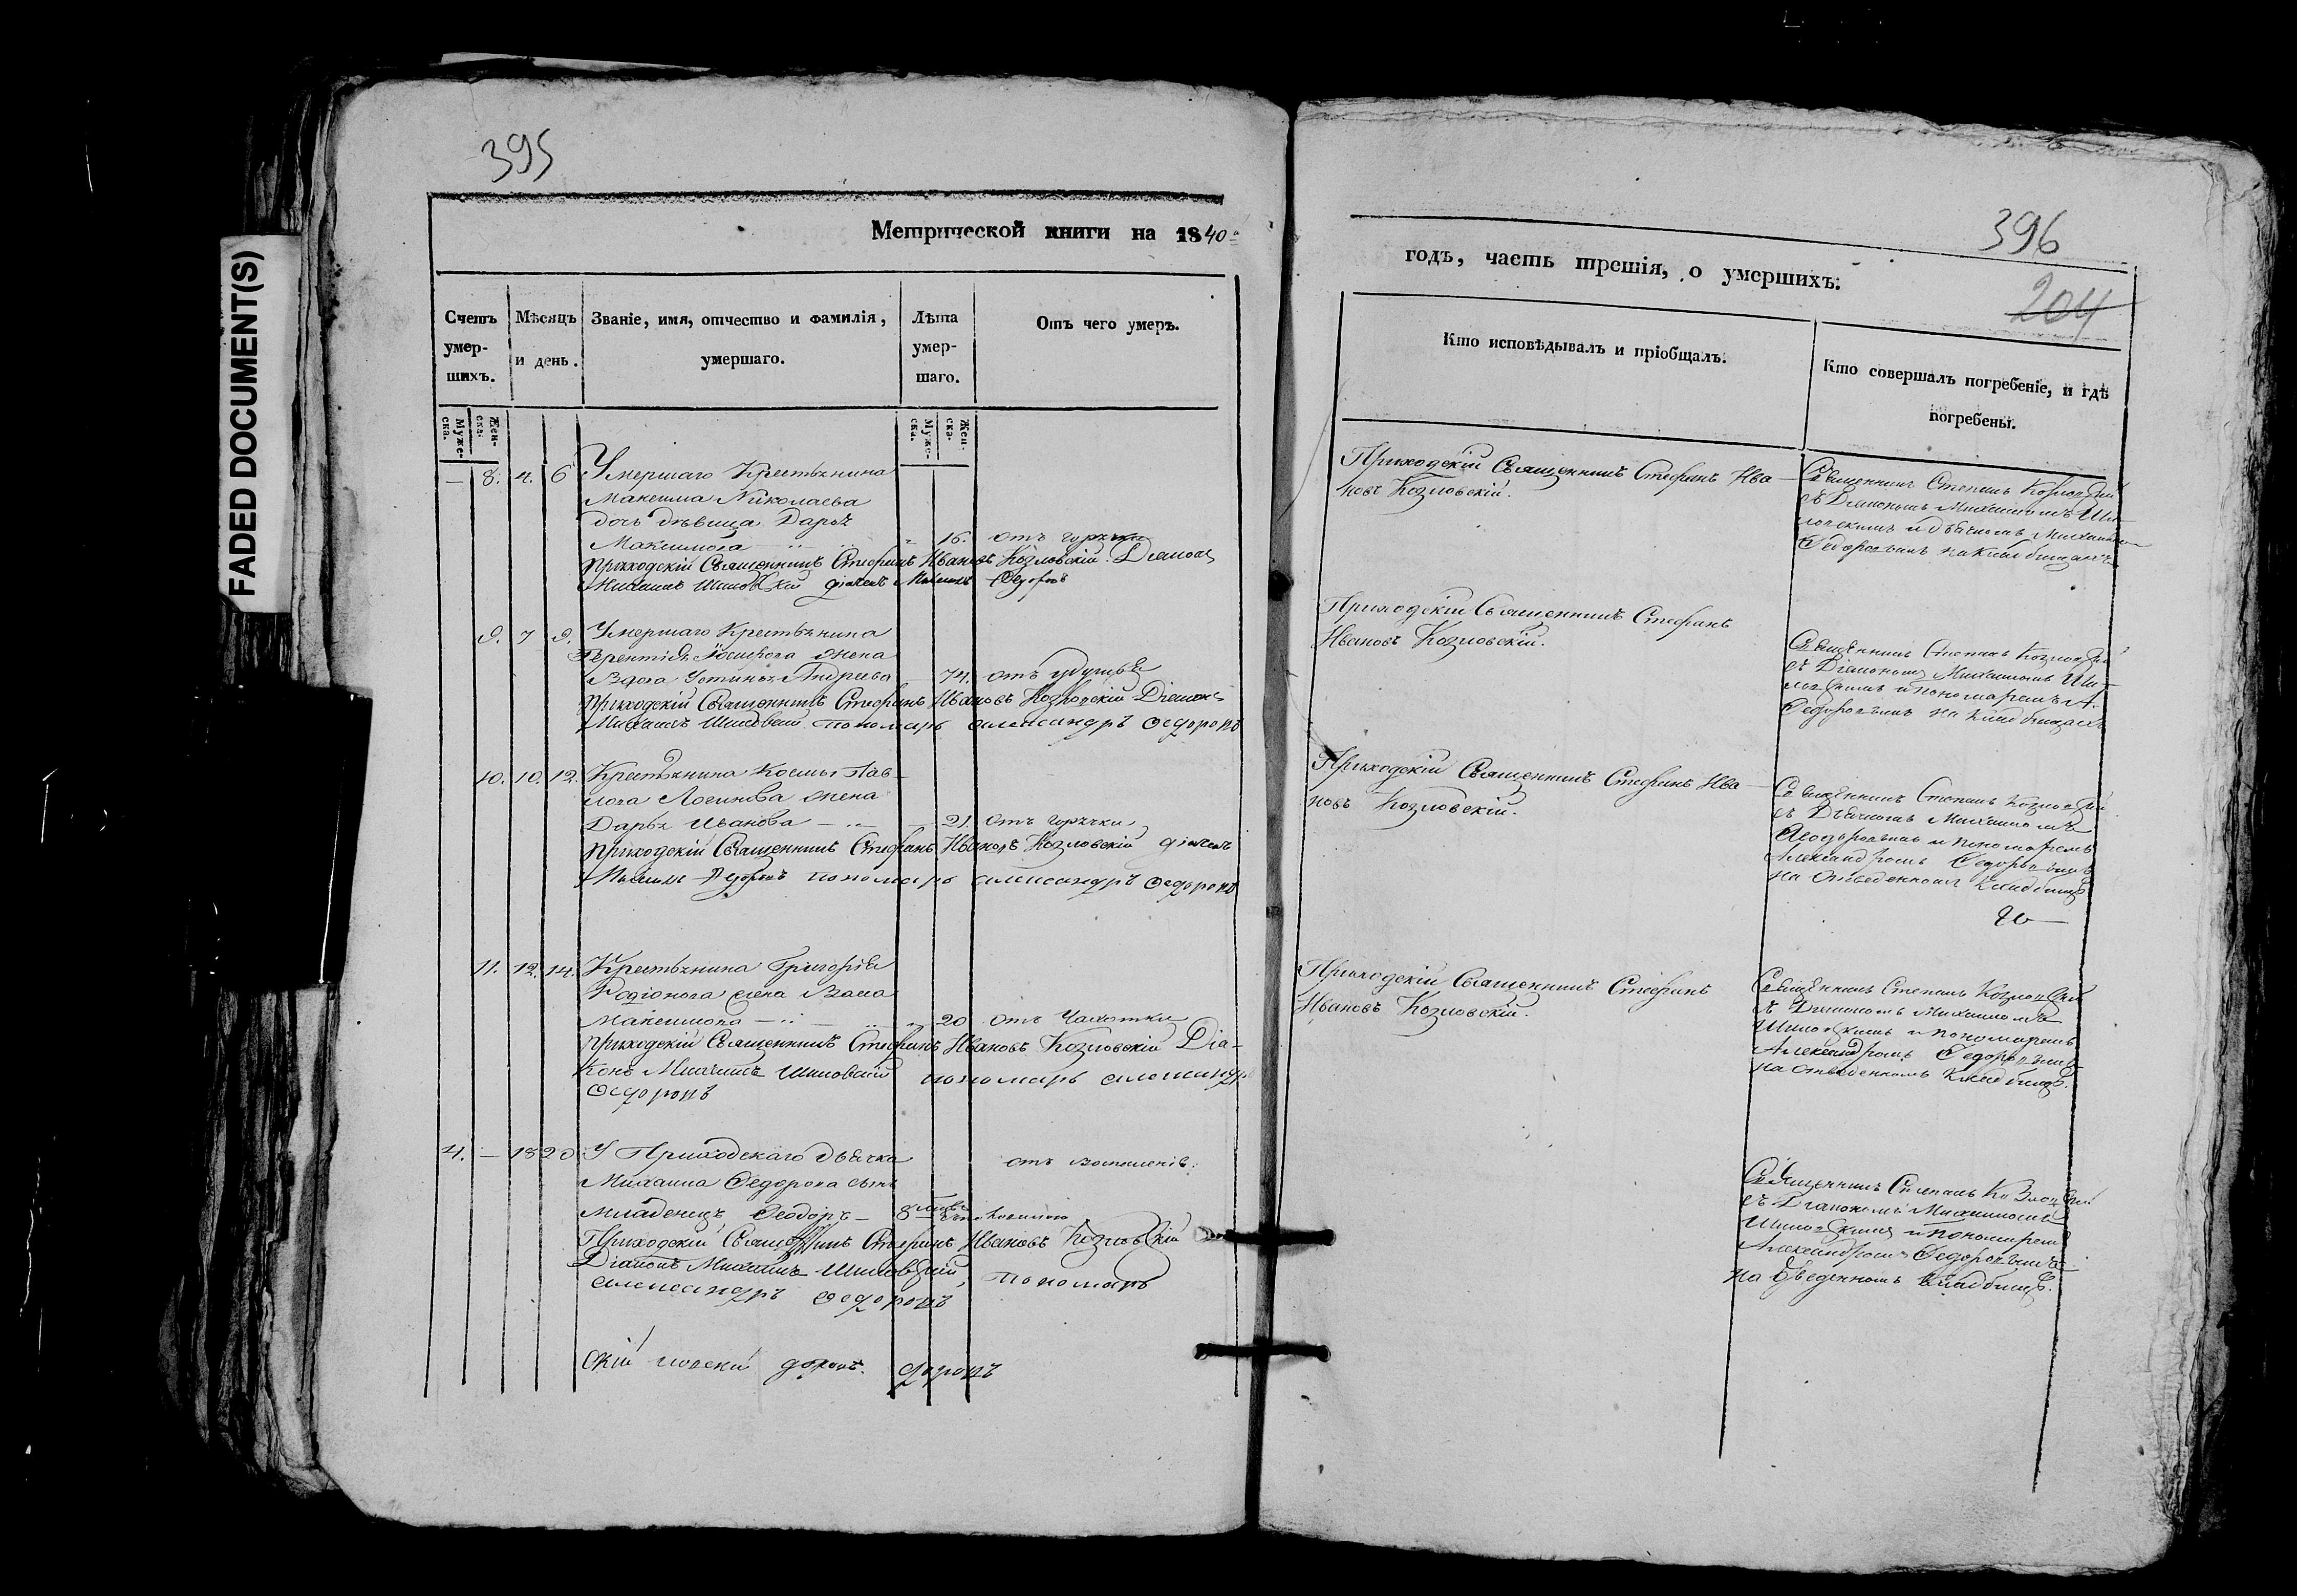 FADED DOCUMENT(S)
395
Метрической книги на 1840.
Счетъ умер-шихъ.
Мѣсяцъ и день.
Званіе, имя, отчество и фамилія, умершаго.
Лѣта умер-шаго.
Отъ чего умеръ.
Муже-ска.
Жен-ска.
Муже-ска.
Жен-ска.
— 8. 4. 6 Умершаго Крестьянина
Максима Николаева
дочь дѣвица Дарья
Максимова 16. отъ горячки
Приходскій Священникъ Стефанъ Ивановъ Козловскій. Діаконъ
Михаилъ Шиловскій дьячекъ Михаилъ Федоровъ
9. 7 9. Умершаго Крестьянина
Терентія Іосифова жена
Вдова Устинья Андреева 74. отъ удушья
Приходскій Священникъ Стефанъ Ивановъ Козловскій Діаконъ
Михаилъ Шиловскій пономарь Александръ Федоровъ
10. 10. 12. Крестьянина Космы Пав-
лова Логинова жена
Дарья Иванова 21. отъ горячки
Приходскій Священникъ Стефанъ Ивановъ Козловскій дьячекъ
Михаилъ Федоровъ пономарь Александръ Федоровъ
11. 12. 14. Крестьянина Григорія
Родіонова жена
Максимова 20 отъ Чахотки
Приходскій Священникъ Стефанъ Ивановъ Козловскій Діа-
конъ Михаилъ Шиловскій пономарь Александръ
Федоровъ
4. — 18 20 У Приходскаго дьячка
Михаила Федорова сынъ
младенецъ Феодоръ 8
Приходскій Священникъ Стефанъ Ивановъ Козловскій
Діаконъ Михаилъ Шиловскій, пономарь
Александръ Федоровъ
скій ловскій доровъ. доровъ
396
204
годъ, часть третія, о умершихъ.
Кто исповѣдывалъ и пріобщалъ.
Кто совершалъ погребеніе, и гдѣ погребены.
Приходскій Священникъ Стефанъ Ива-
новъ Козловскій.
Священникъ Стефанъ Козловскій
съ Діакономъ Михаиломъ Ши-
ловскимъ и дьячкомъ Михаиломъ
Федоровымъ на кладбищѣ
Приходскій Священникъ Стефанъ
Ивановъ Козловскій.
Священникъ Стефанъ Козловскій
съ Діакономъ Михаиломъ Ши-
ловскимъ и пономаремъ А.
Федоровымъ на кладбищѣ
Приходскій Священникъ Стефанъ Ива-
новъ Козловскій.
Священникъ Стефанъ Козловскій
съ Дьячкомъ Михаиломъ
Феодоровымъ и пономаремъ
Александромъ Федоровымъ
на отведенномъ кладбищѣ
Приходскій Священникъ Стефанъ
Ивановъ Козловскій.
Священникъ Стефанъ Козловскій
съ Діакономъ Михаиломъ
Шиловскимъ и пономаремъ
Александромъ Федоровымъ
на отведенномъ кладбищѣ.
Священникъ Стефанъ Козловскій
съ Діакономъ Михаиломъ
Шиловскимъ и пономаремъ
Александромъ Федоровымъ
на отведенномъ кладбищѣ.